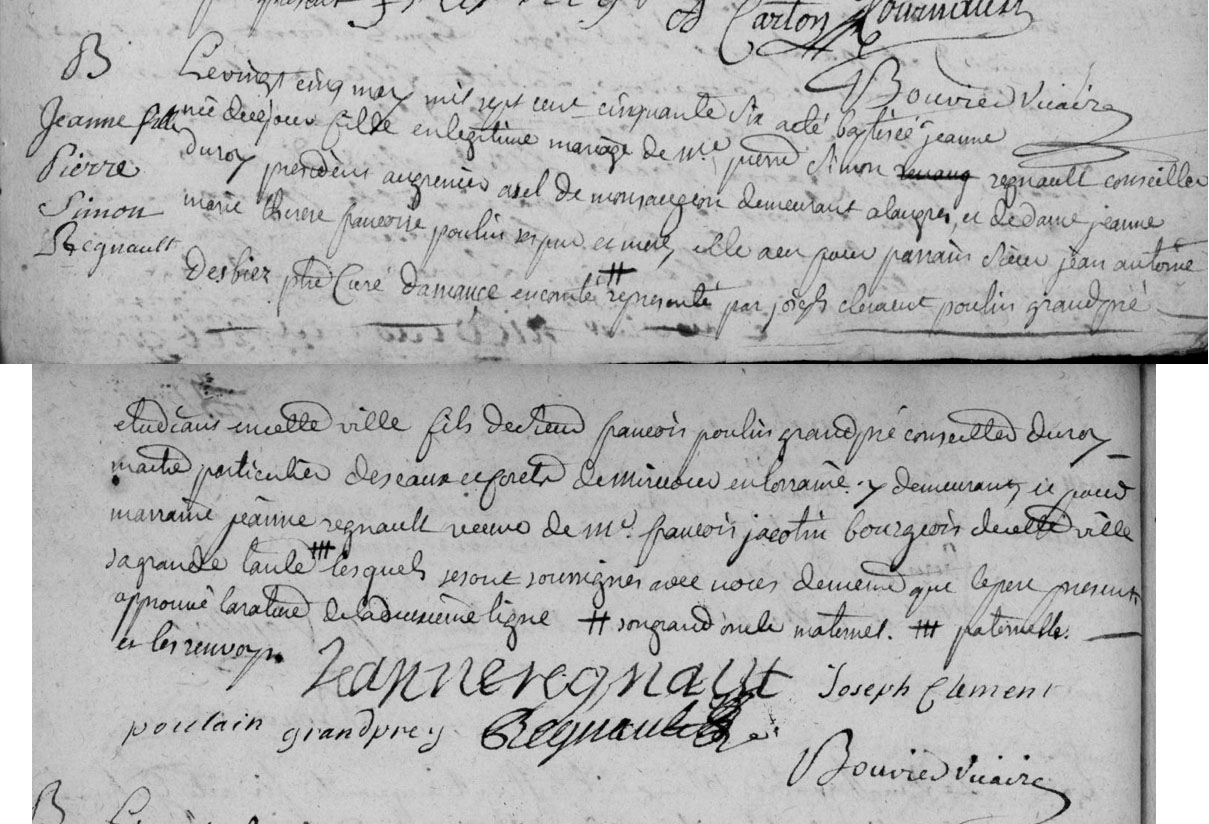 Carton Tournault
Bouvier Vicaire
B
Jeanne fille
Pierre
Simon
Regnault
Le vingt cinq may mil sept cent cinquante six a eté baptisée jeanne
née de ce jour fille en legitime mariage de Mre. pierre Simon regnault conseiller
du roy president au grenier a sel de monsaugeon demeurant a langres, et de dame jeanne
marie therese francoise poulin ses pere et mere, elle a eu pour parrain Sieur jean antoine
desbiez ptre Curé damance en comté ⧺ representé par joseph clement poulin grandpré
etudians en cette ville fils de sieur francois poulin grandpré conseiller du roy
maitre particulier des eaux et forets de mirecour en lorraine y demeurant, et pour
marraine jeanne regnault veuve de Mre. francois jacotin bourgeois de cette ville
sa grande tante ⧻ lesquels se sont soussignes avec nous de meme que le pere present.
approuvé la rature de la deusieme ligne ⧺ son grand oncle maternel. ⧻ paternelle.
et les renvoys.
Jeanne regnault Joseph Clement
poulain grandprey Regnault
Bouvier Vicaire
B